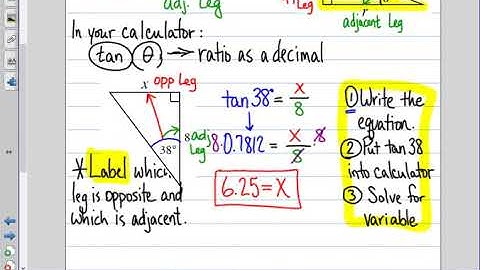 adj. Leg
adjacent leg
In your calculator:
tan (θ) → ratio as a decimal
x opp Leg
8 adj
Leg
38°
* Label which
leg is opposite and
which is adjacent.
tan38° = x/8
8·0.7812 = x/8 · 8
6.25=x
① Write the
equation.
② Put tan 38
into calculator
③ Solve for
variable